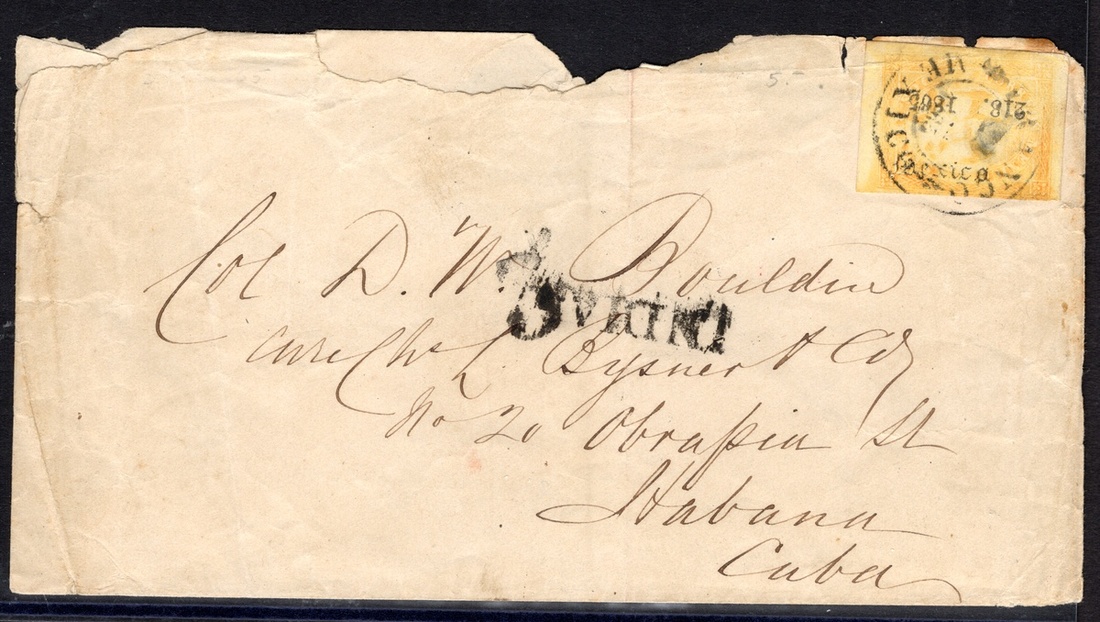 5
Mexico
218. 1865
Col D. W. Bouldin
Care Chs L Bysner & Co
No 20 Obrapia St
Habana
Cuba